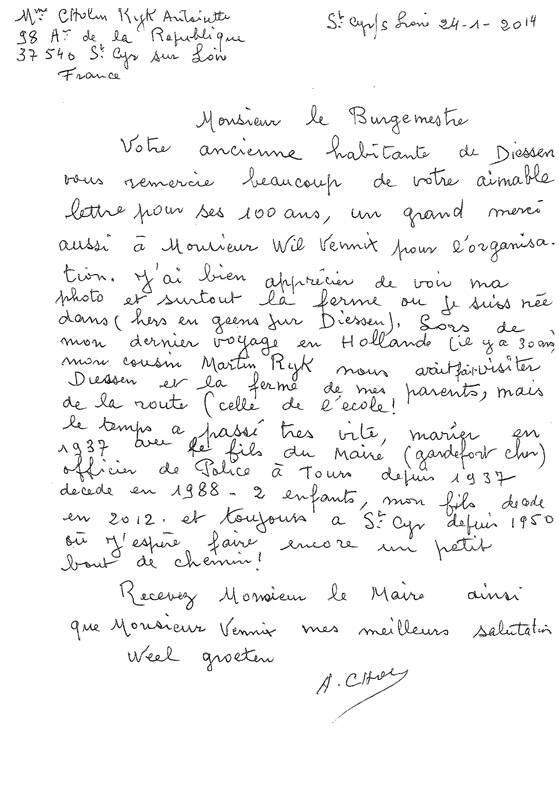 Mme CHolin Ryk Antoinette
98 Av. de la Republique
37540 St Cyr sur Loire
France
St Cyr/s Loire 24-1-2014
Monsieur le Burgemestre
Votre ancienne habitante de Diessen
vous remercie beaucoup de votre aimable
lettre pour ses 100 ans, un grand merci
aussi à Monsieur Wil Vennix pour l'organisa-
tion. J'ai bien apprécier de voir ma
photo et surtout la ferme ou je suis née
dans ( hers en geens Diessen). Lors de
mon dernier voyage en Hollande (ie y a 30 ans)
mon cousin Martin Ryk nous avait fait visiter
Diessen et la ferme de mes parents, mais
de la route (celle de l'ecole!
le temps a passé tres vite, marier en
1937 avec le fils du Maire (gardefort cher)
officier de Police à Tours depuis 1937
decede en 1988 - 2 enfants, mon fils decede
en 2012. et toujours a St Cyr depuis 1950
où j'espère faire encore un petit
bout de chemin!
Recevez Monsieur le Maire ainsi
que Monsieur Vennix mes meilleurs salutation
Weel groeten
A. CHol